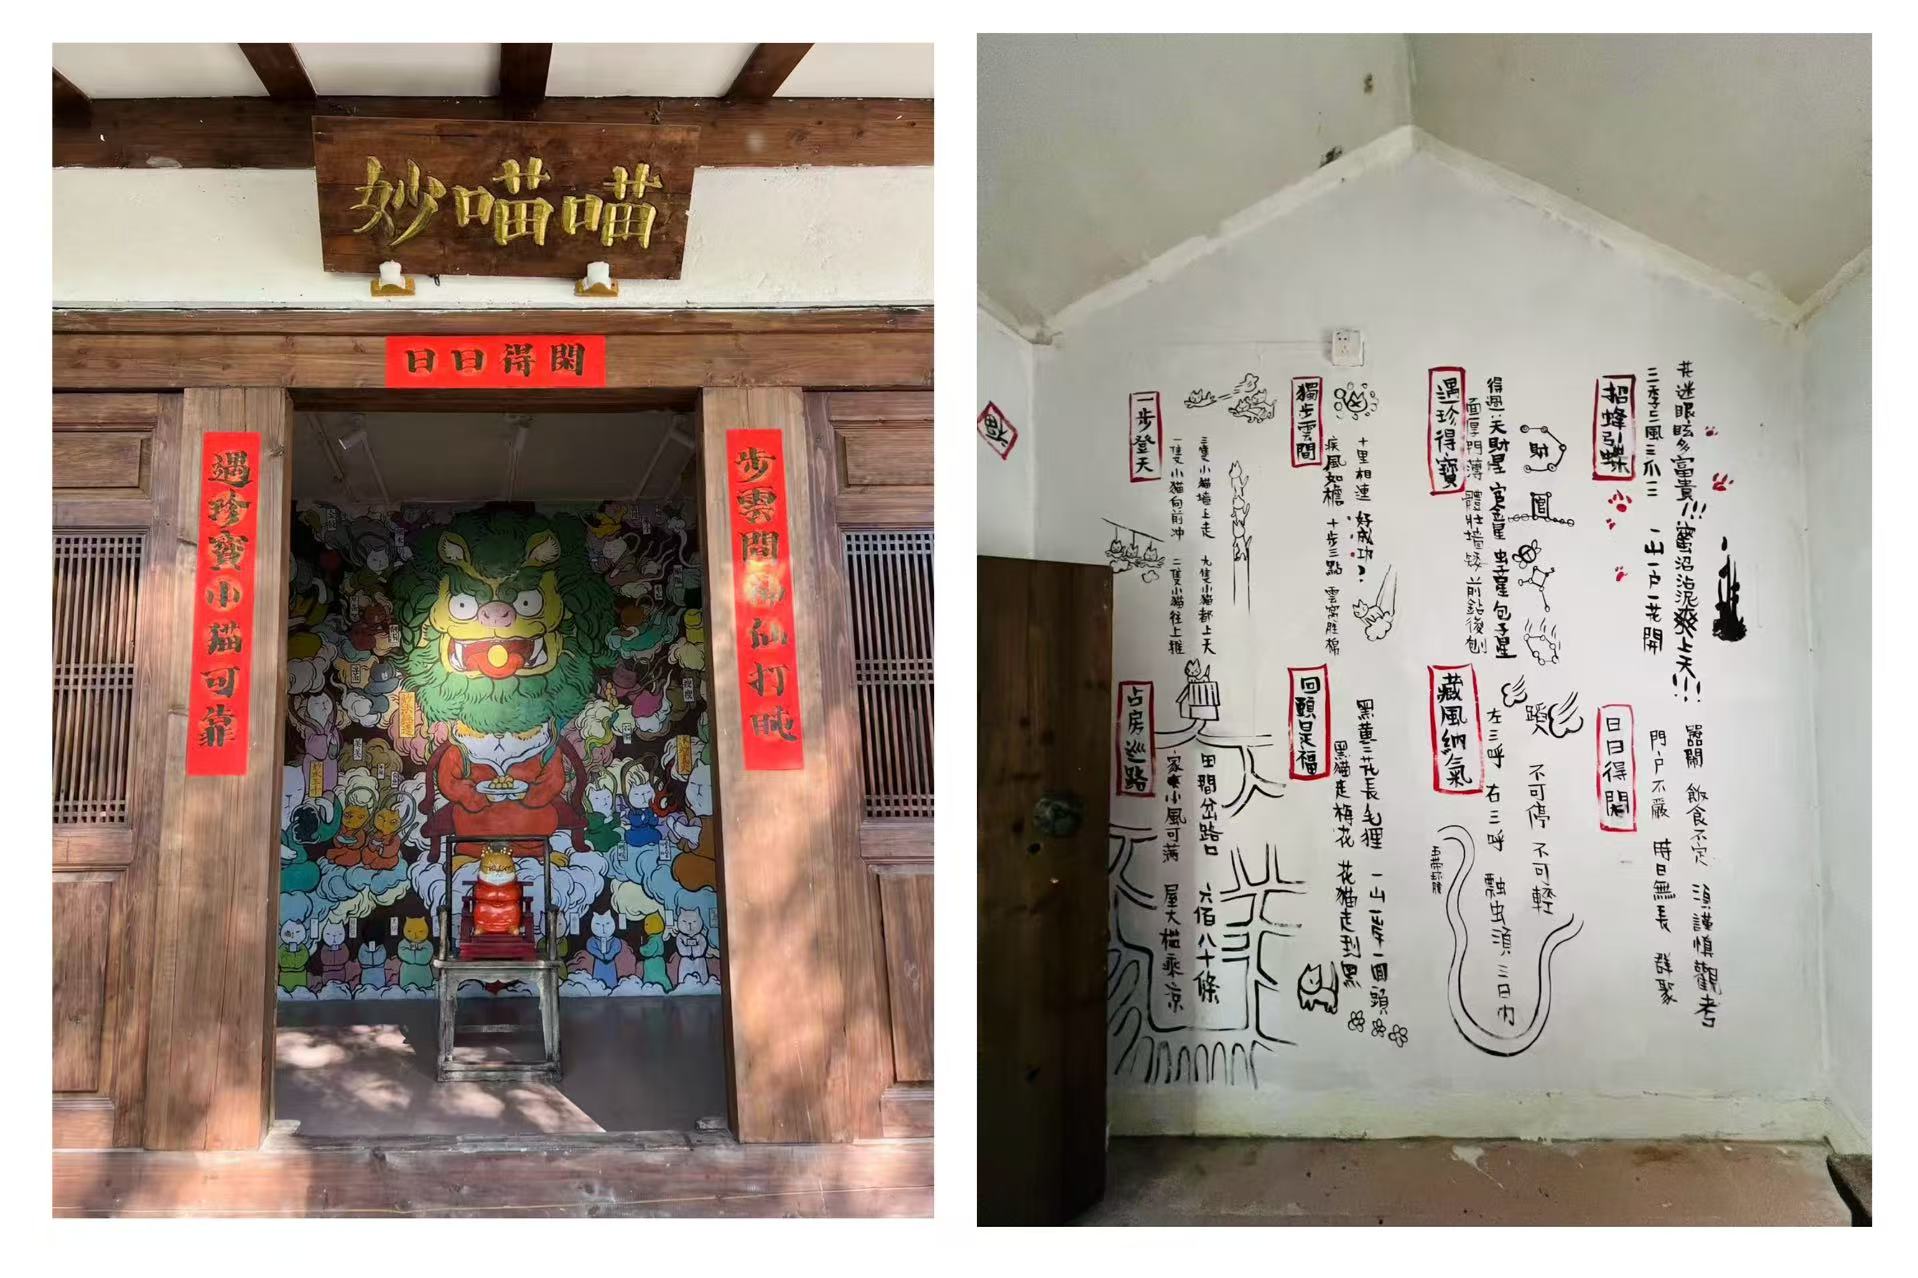 妙喵喵
日日得閑
步雲間神仙打盹
遇珍寶小貓可靠
福
招蜂引蝶
花迷眼眩多富貴!!! 蜜沼泥爽上天!!!
三季三風三爪三 一山一户一花開
遇珍得寶
得過:天財星 官金星 虫子星 包子星
面厚門薄 體壯墻矮 前鉆後刨
財
官
獨步雲間
十里相連 好成功?
疾風如檐 十步三點 雲窩胜棉
一步登天
三隻小貓墻上走 九隻小貓都上天
一隻小貓向前冲 二隻小貓往上推
日日得閑
嚣鬧 飯食不定 須謹慎觀考
門户不嚴 時日無長 群聚
藏風納氣
蹈 不可停 不可輕
左三呼 右三呼 飄虫須三日内
回頭是福
黑黄三花長毛狸 一山一岸一回頭
黑貓走梅花 花猫走到黑
占房巡路
田間岔路口 六佰八十條
家寒小風可滿 屋大檔乘凉